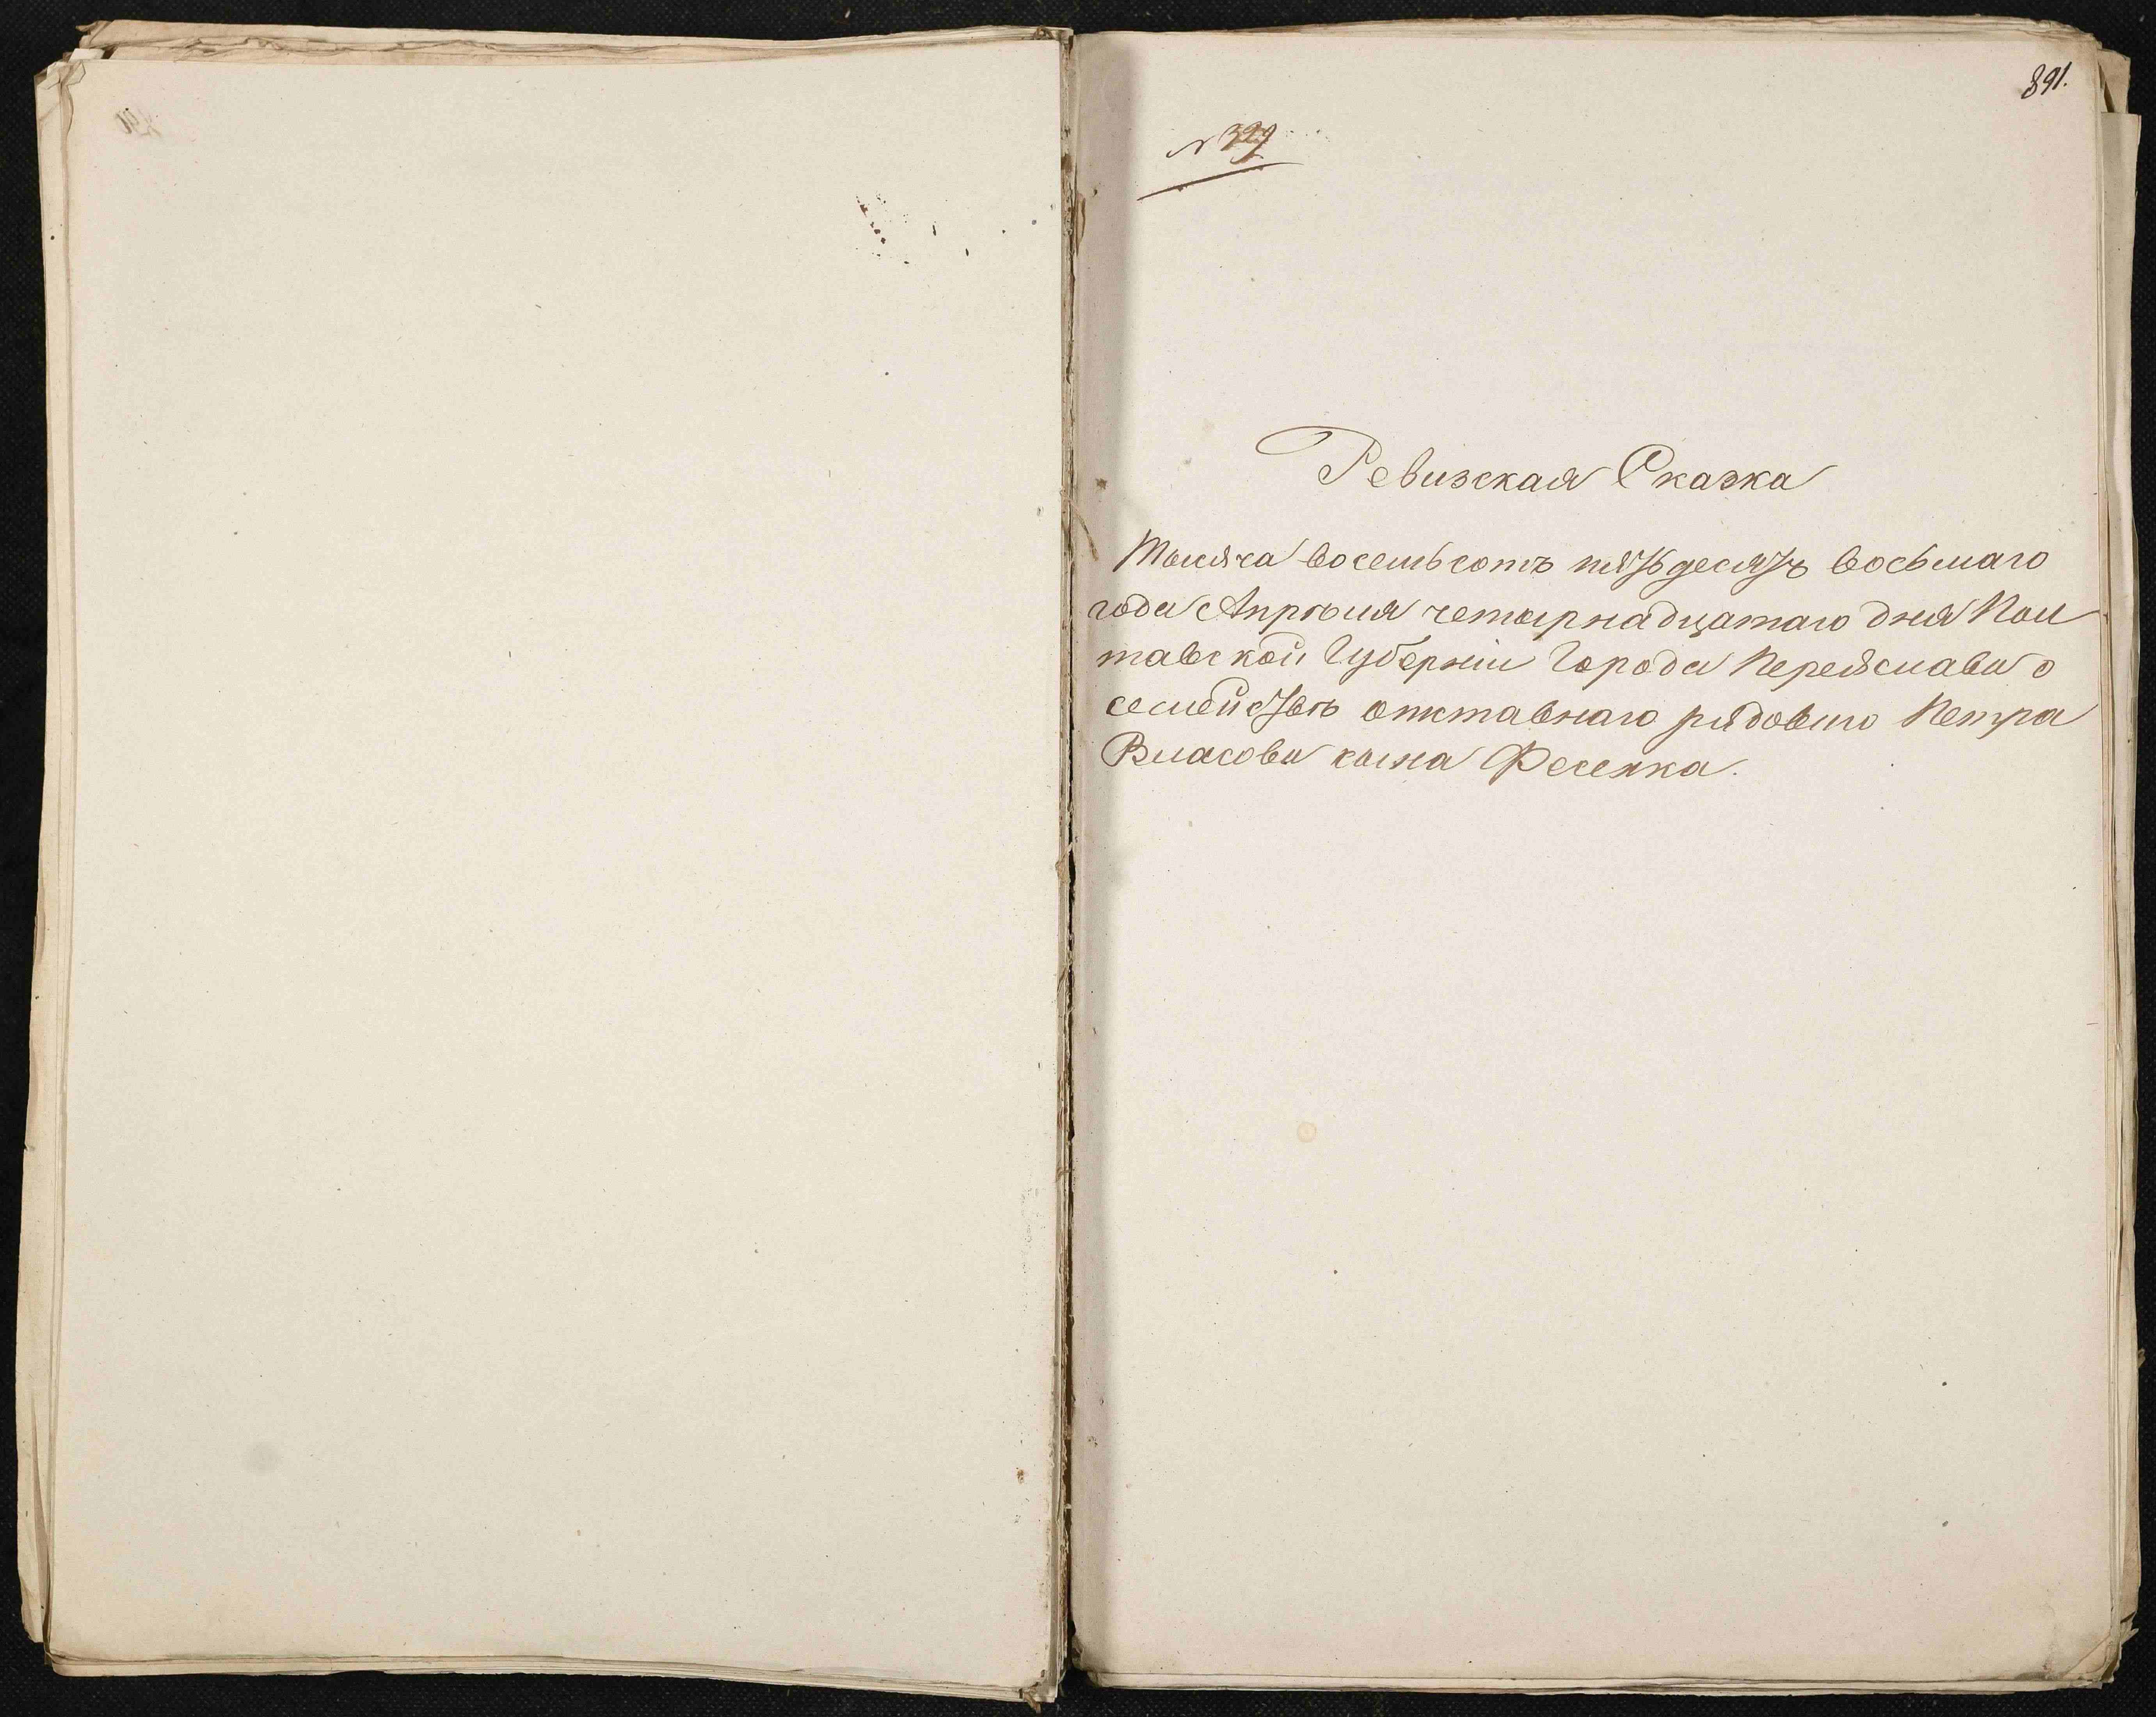 891.
N 329
Ревизская Сказка
Тысяча восемьсотъ пятьдесятъ восьмаго
года Апрѣля четырнадцатаго дня Пол
тавской Губерніи Города Переяслава о
семействѣ отставнаго рядового Петра
Власова сына Фесенка.